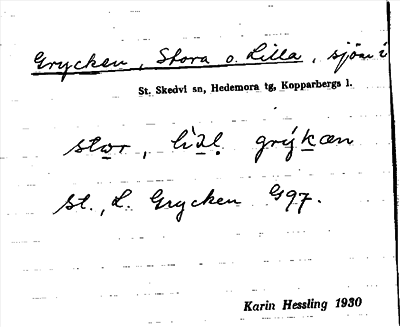 Grycken, Stora o. Lilla, sjöar i
St. Skedvi sn, Hedemora tg, Kopparbergs l.
stor, lìḷ grýkæn
St., L. Grycken G97.
Karin Hessling 1930